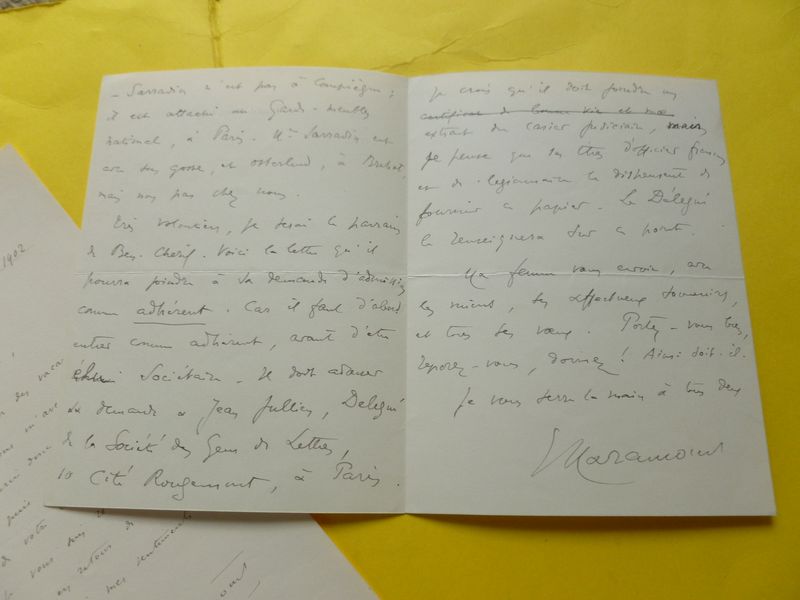 – Sarradin n'est pas à Compiègne ;
il est attaché au Garde-meubles
national, à Paris. Mme Sarradin est
avec ses gosses, et à Bréhat,
mais non pas chez nous.
Très volontiers, je serai le parrain
de Ben-Chérif. Voici la lettre qu'il
pourra joindre à sa demande d'admission
comme adhérent. Car il faut d'abord
entrer comme adhérent, avant d'être
Sociétaire. Il doit adresser
sa demande à Jean Jullien, Délégué
de la Société des Gens de Lettres,
10 Cité Rougemont, à Paris.
Je crois qu'il doit joindre un
certificat de bonne vie et mœ
extrait du casier judiciaire, mais
je pense que ses titres d'officier français
et de légionnaire le dispensent de
fournir ce papier. Le Délégué
le renseignera sur ce point.
Ma femme vous envoie, avec
les miens, ses affectueux souvenirs,
et tous ses vœux. Portez-vous bien,
reposez-vous, dormez ! Ainsi soit-il.
Je vous serre la main à tous deux
1902
des vaca
de votre
je vous
retour de
mes sentiments